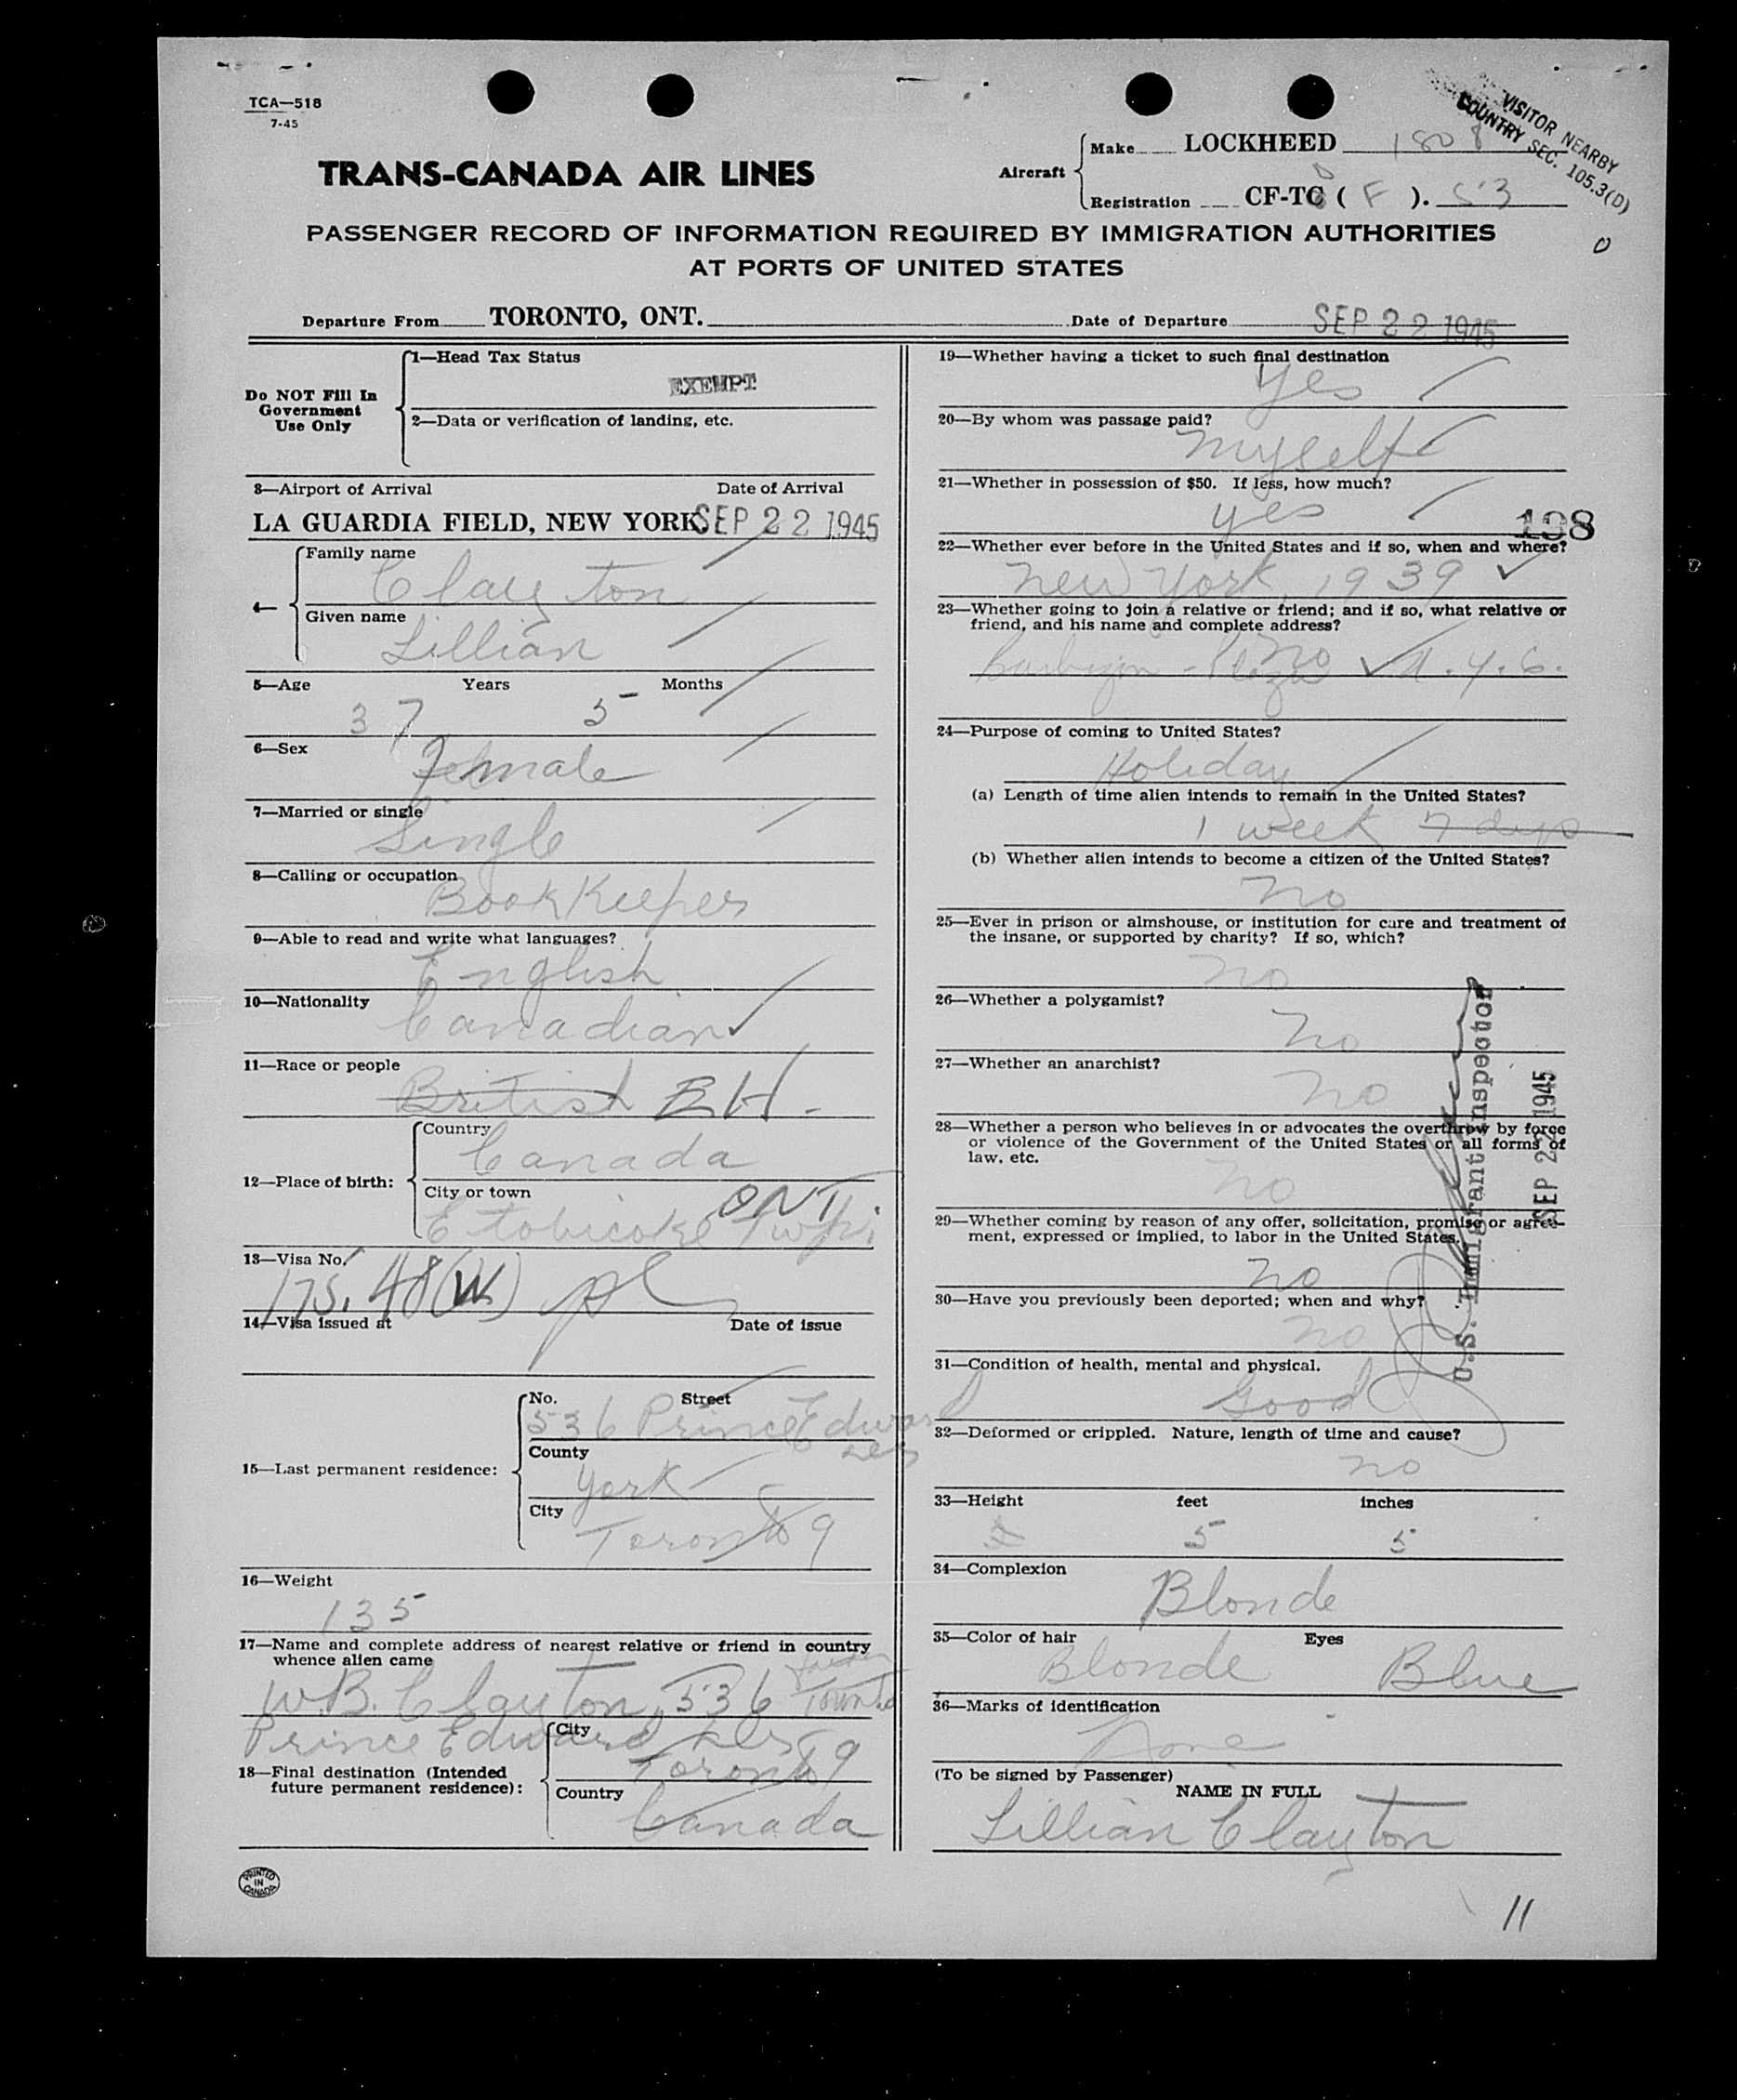 TCA—518
7-45
VISITOR NEARBY
COUNTRY SEC. 105.3(D)
TRANS-CANADA AIR LINES
Aircraft
Make LOCKHEED
Registration CF-TC ( F ). 53
PASSENGER RECORD OF INFORMATION REQUIRED BY IMMIGRATION AUTHORITIES
AT PORTS OF UNITED STATES
Departure From TORONTO, ONT. Date of Departure SEP 22 1945
Do NOT Fill In
Government
Use Only
1—Head Tax Status
EXEMPT
2—Data or verification of landing, etc.
3—Airport of Arrival Date of Arrival
LA GUARDIA FIELD, NEW YORK SEP 22 1945
4—
Family name
Clayton
Given name
Lillian
5—Age Years Months
37 5
6—Sex
Female
7—Married or single
Single
8—Calling or occupation
BookKeeper
9—Able to read and write what languages?
English
10—Nationality
Canadian
11—Race or people
British
12—Place of birth:
Country
Canada
City or town
ONT.
Etobicoke Twp.
13—Visa No.
175.48(W)
14—Visa issued at Date of issue
15—Last permanent residence:
No. Street
536 Prince Edward
County
York
City
Toronto 9
16—Weight
135
17—Name and complete address of nearest relative or friend in country
whence alien came
W.B. Clayton, 536
Prince Edward
18—Final destination (Intended
future permanent residence):
City
Toronto 9
Country
Canada
PRINTED
IN
CANADA
19—Whether having a ticket to such final destination
Yes
20—By whom was passage paid?
myself
21—Whether in possession of $50. If less, how much?
yes
198
22—Whether ever before in the United States and if so, when and where?
New York, 1939
23—Whether going to join a relative or friend; and if so, what relative or
friend, and his name and complete address?
no
Barbizon - Plaza N.Y.C.
24—Purpose of coming to United States?
Holiday
(a) Length of time alien intends to remain in the United States?
1 week 7 days
(b) Whether alien intends to become a citizen of the United States?
No
25—Ever in prison or almshouse, or institution for care and treatment of
the insane, or supported by charity? If so, which?
no
26—Whether a polygamist?
No
27—Whether an anarchist?
no
28—Whether a person who believes in or advocates the overthrow by force
or violence of the Government of the United States or all forms of
law, etc.
no
29—Whether coming by reason of any offer, solicitation, promise or agree-
ment, expressed or implied, to labor in the United States.
no
30—Have you previously been deported; when and why?
no
31—Condition of health, mental and physical.
Good
32—Deformed or crippled. Nature, length of time and cause?
no
33—Height feet inches
5 5
34—Complexion
Blonde
35—Color of hair Eyes
Blonde Blue
36—Marks of identification
None
(To be signed by Passenger)
NAME IN FULL
Lillian Clayton
U.S. Immigrant Inspector
SEP 22 1945
11